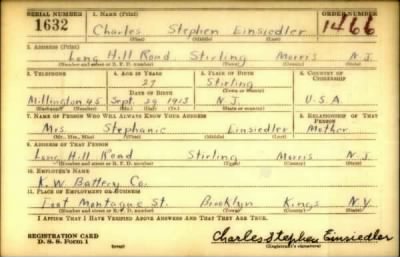 SERIAL NUMBER 1. NAME (Print) ORDER NUMBER
1632 Charles Stephen Einsiedler 1466
(First) (Middle) (Last)
2. ADDRESS (Print)
Long Hill Road Stirling Morris N.J.
(Number and street or R. F. D. number) (Town) (County) (State)
3. TELEPHONE 4. AGE IN YEARS 5. PLACE OF BIRTH 6. COUNTRY OF CITIZENSHIP
27 Stirling
(Town or county)
Millington 45 Sept. 29 1913 N.J. U.S.A
(Exchange) (Number) (Mo.) (Day) (Yr.) (State or country)
7. NAME OF PERSON WHO WILL ALWAYS KNOW YOUR ADDRESS 8. RELATIONSHIP OF THAT PERSON
Mrs. Stephanie Einsiedler Mother
(Mr., Mrs., Miss) (First) (Middle) (Last)
9. ADDRESS OF THAT PERSON
Long Hill Road Stirling Morris N.J.
(Number and street or R. F. D. number) (Town) (County) (State)
10. EMPLOYER'S NAME
K.W. Battery Co.
11. PLACE OF EMPLOYMENT OR BUSINESS
Foot Montague St. Brooklyn Kings N.Y.
(Number and street or R. F. D. number) (Town) (County) (State)
I AFFIRM THAT I HAVE VERIFIED ABOVE ANSWERS AND THAT THEY ARE TRUE.
REGISTRATION CARD
D. S. S. Form 1 (over) Charles Stephen Einsiedler
(Registrant's signature)